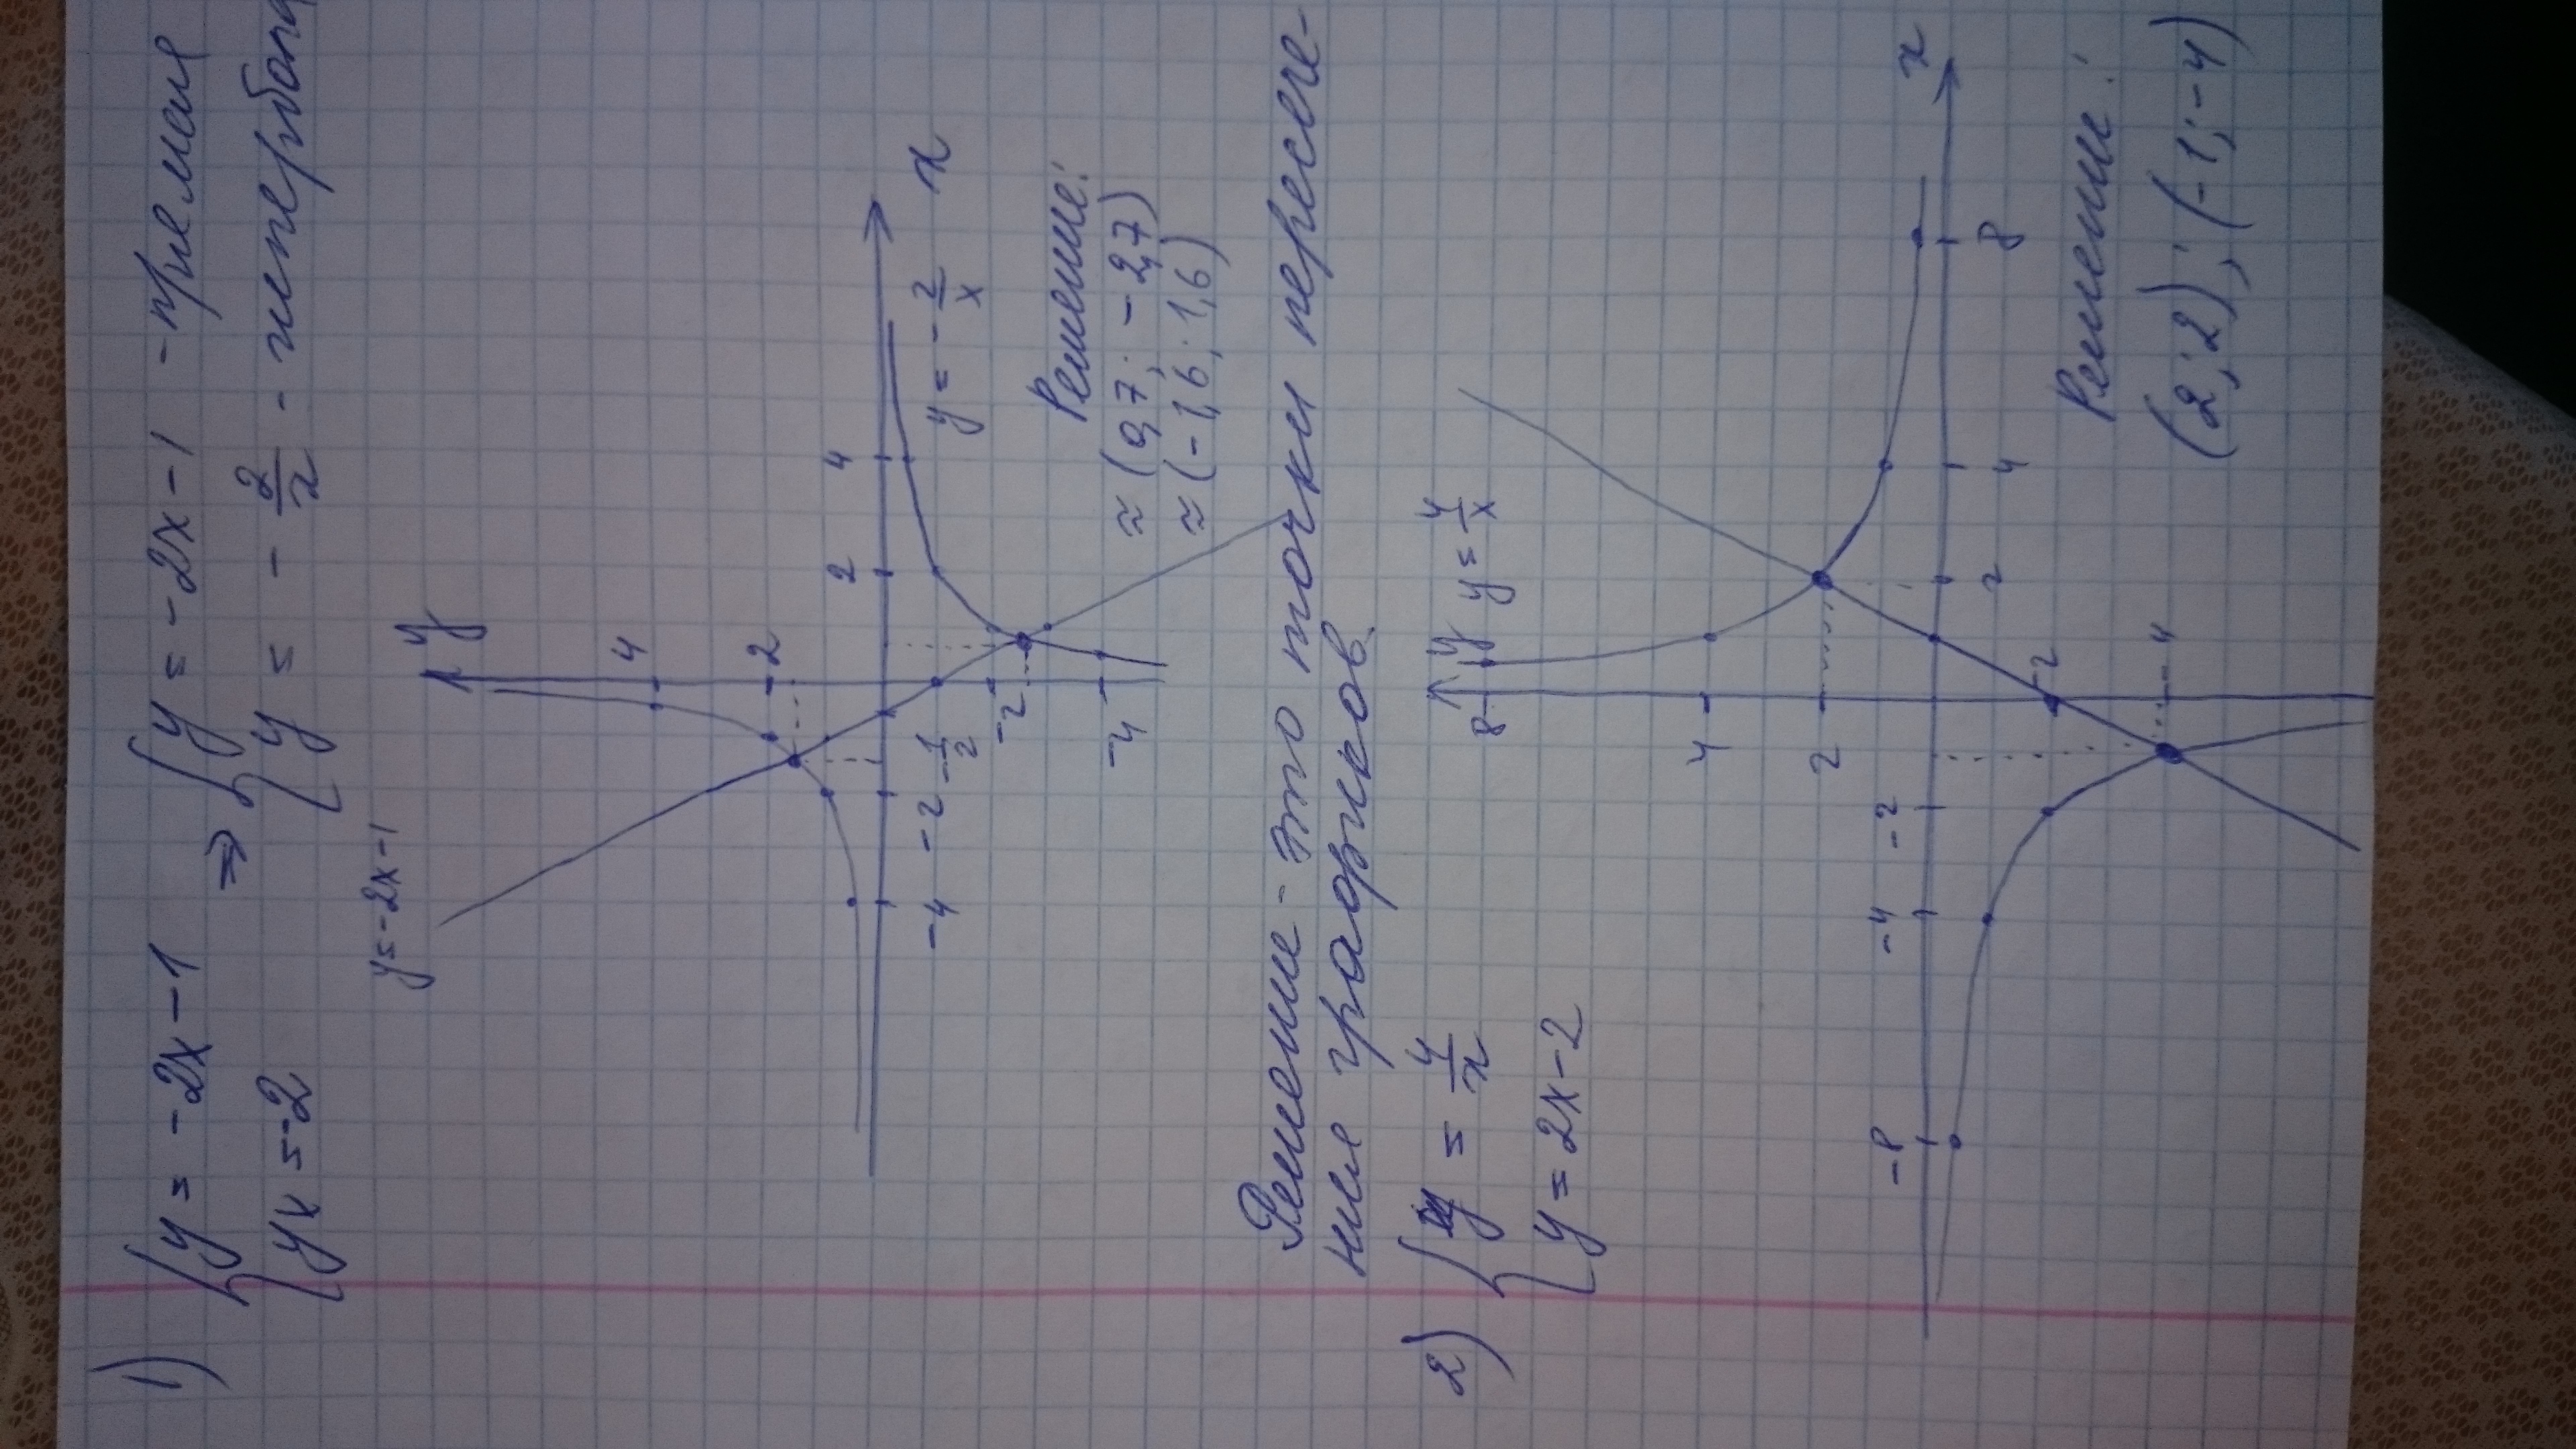 1) { y = -2x-1 ⇒ { y = -2x-1 - прямая
{ yx=-2 { y = - 2/x - гипербола
y=-2x-1
y
4
-2
2
4
x
y = - 2/x
-4
-2
-1/2
-2
-4
Решение:
≈ (0,7; -2,7)
≈ (-1,6; 1,6)
Решение - это точки пересече-
ния графиков
2) { y = 4/x
{ y = 2x-2
y
y = 4/x
8
4
2
x
-8
-4
-2
2
4
8
-2
-4
Решение:
(2; 2); (-1; -4)